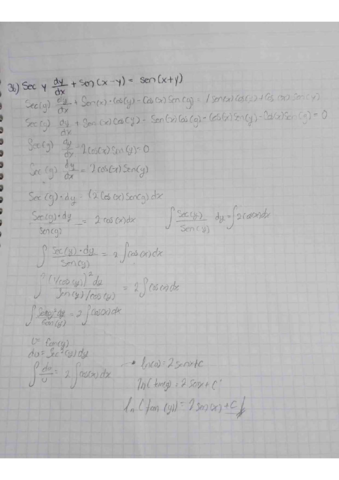 31) Sec y dy/dx + sen(x-y) = sen(x+y)
Sec(y) dy/dx + Sen(x)·Cos(y) - Cos(x) Sen(y) = Sen(x) Cos(y) + Cos(x) Sen(y)
Sec(y) dy/dx + Sen(x) Cos(y) - Sen(x) Cos(y) - Cos(x) Sen(y) - Cos(x) Sen(y) = 0
Sec(y) dy/dx - 2 Cos(x) Sen(y) = 0
Sec(y) dy/dx = 2 Cos(x) Sen(y)
Sec(y)·dy = (2 Cos(x) Sen(y)) dx
Sec(y)·dy / Sen(y) = 2 cos(x) dx ∫ Sec(y)/Sen(y) dy = ∫ 2 cos(x) dx
∫ Sec(y)·dy / Sen(y) = 2 ∫ cos(x) dx
∫ (1/cos(y))² dy / Sen(y)/cos(y) = 2 ∫ cos(x) dx
∫ Sec(y)² dy / tan(y) = 2 ∫ cos(x) dx
u = tan(y)
du = Sec²(y) dy
∫ du/u = 2 ∫ cos(x) dx → ln(u) = 2 sen(x) + C
ln(tan(y)) = 2 sen x + C
ln(tan(y)) = 2 sen(x) + C